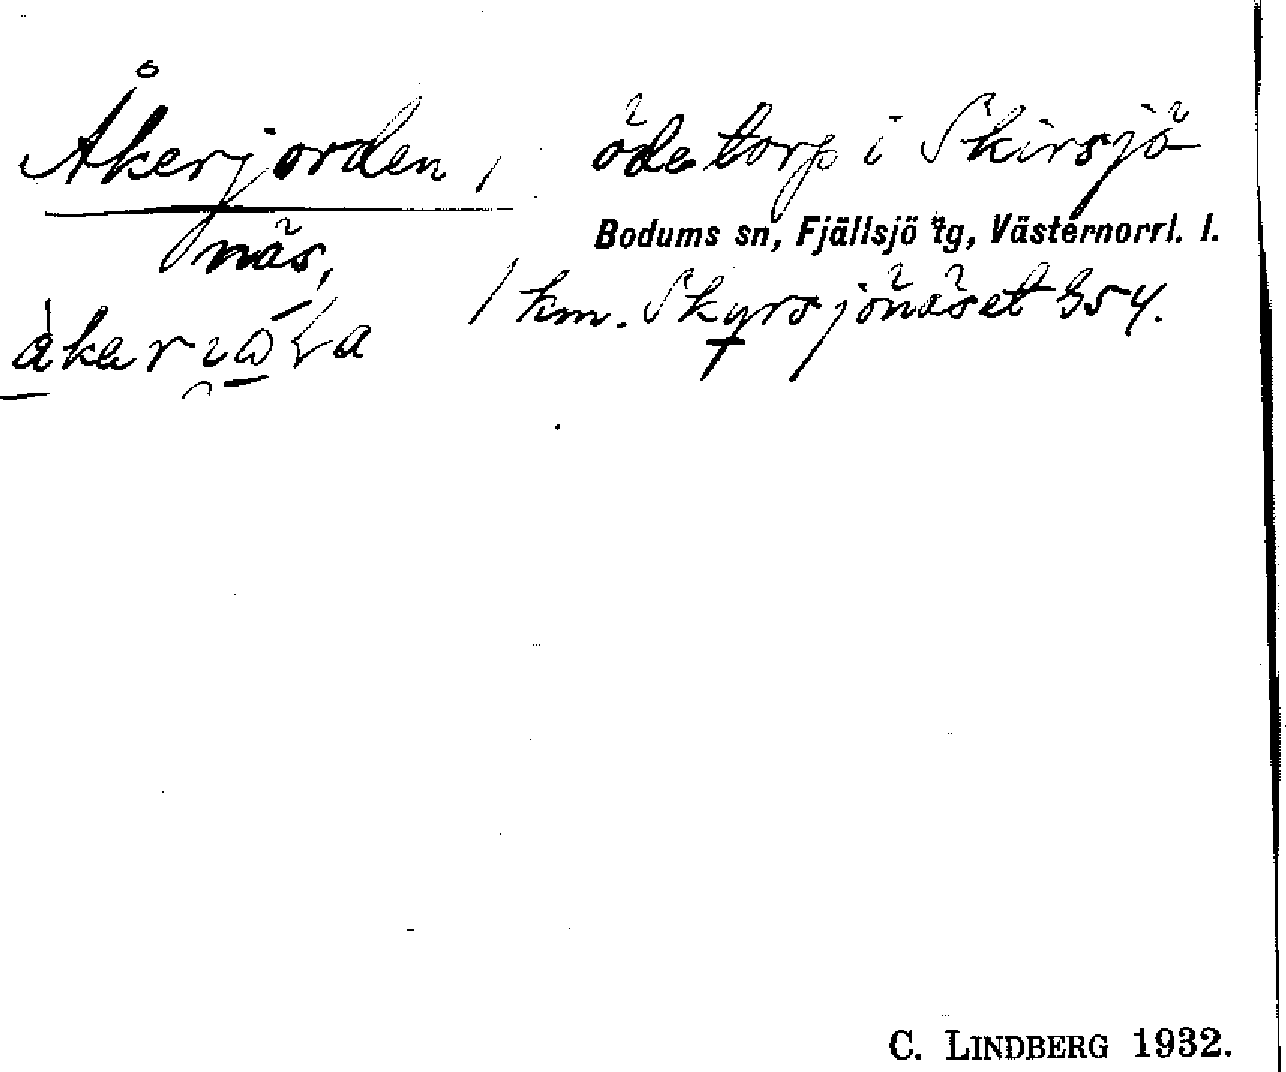 Åkerjorden, öde torp i Skirsjö
näs, Bodums sn, Fjällsjö tg, Västernorrl. l.
1 km. Skyrsjönäset
C. LINDBERG 1932.